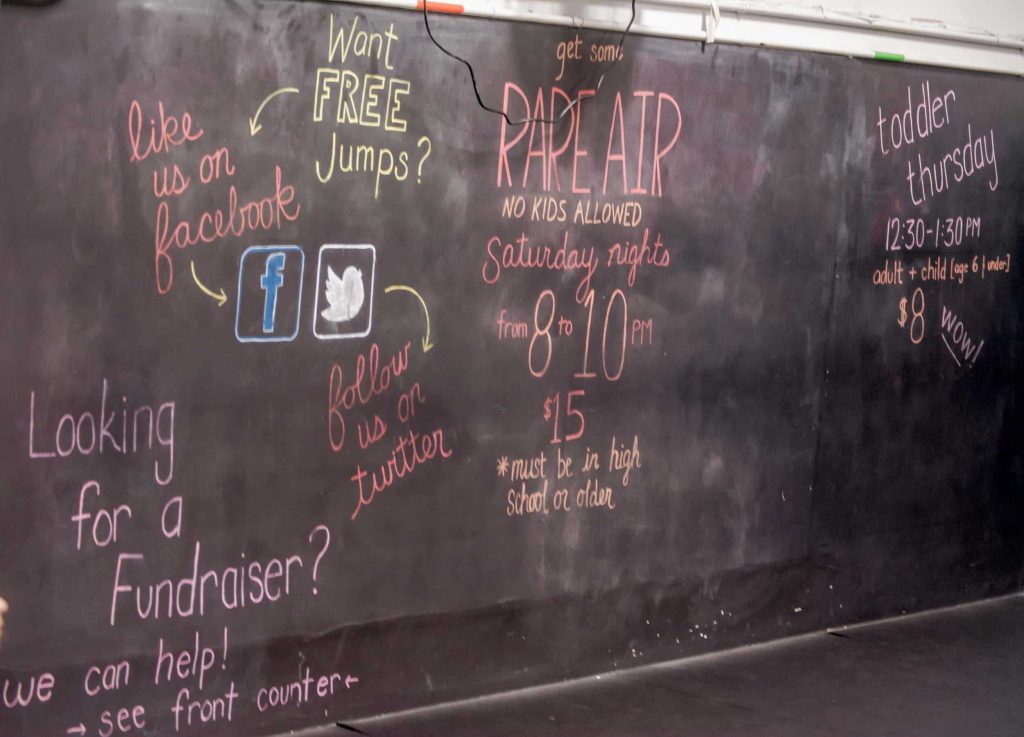 Want
FREE
Jumps?
like
us on
facebook
f
follow
us on
twitter
Looking
for a
Fundraiser?
we can help!
→ see front counter←
get some
RARE AIR
NO KIDS ALLOWED
Saturday nights
from 8 to 10 PM
$15
*must be in high
school or older
toddler
thursday
12:30-1:30 PM
adult + child [age 6 | under]
$8
WOW!